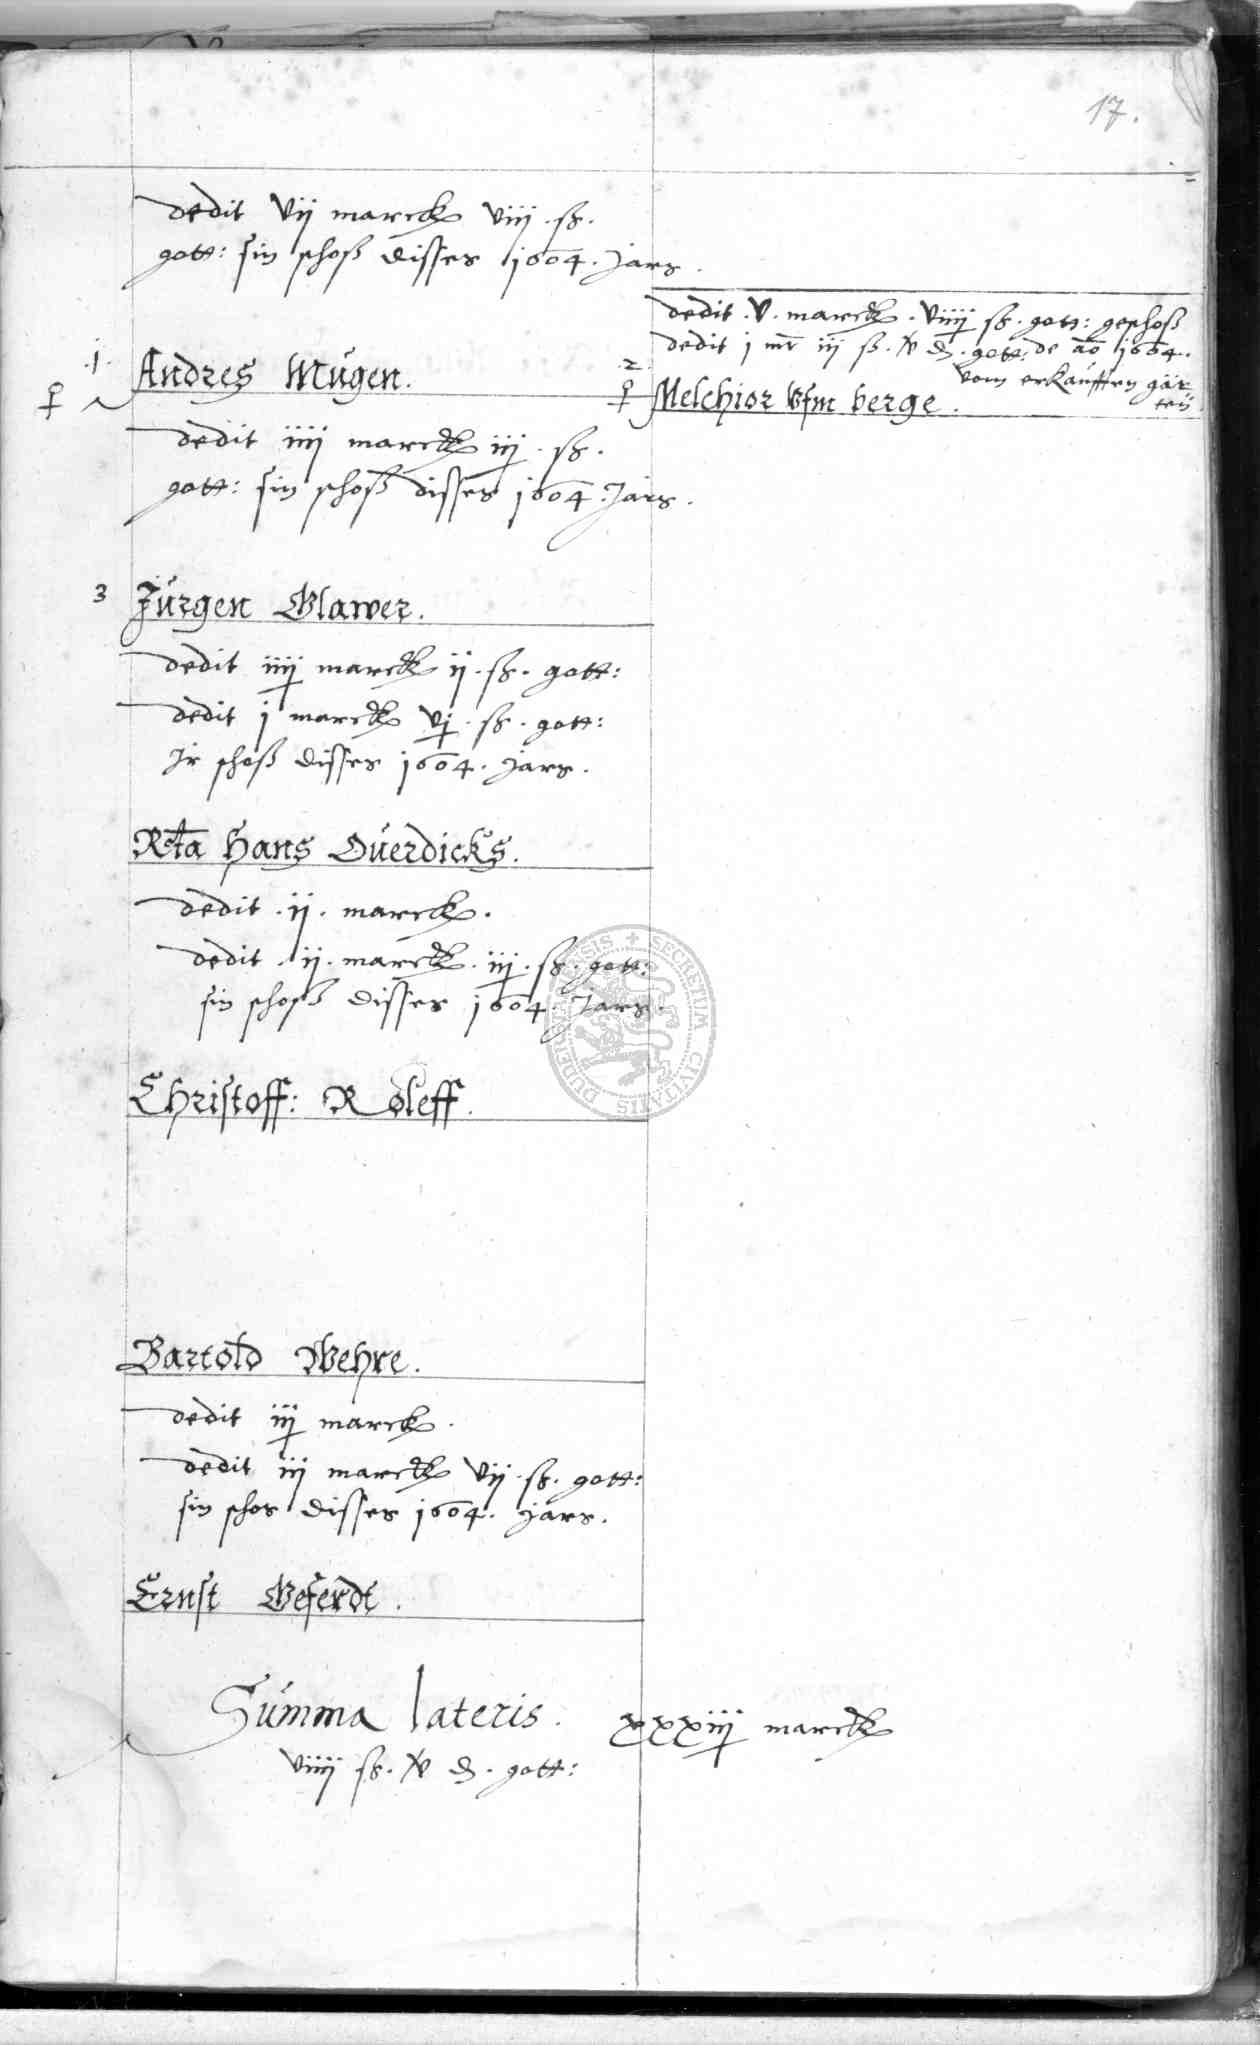 17.
dedit vij marck viij . ß.
gott: sin schoß disses 1604. Jars.
.1. Andres Mügen.
dedit . v . marck . viiij ß . gott: geschoß
dedit j mr iij ß . d . gott: de ao 1604.
vom erkaufften gar
ten
.2. Melchior Vfm berge.
dedit iiij marck iij . ß.
gott: sin schoß disses 1604. Jars.
3 Jürgen Glawer.
dedit iiij marck ij . ß . gott:
dedit j marck vj . ß . gott:
Jr schoß disses 1604. jars.
Rta Hans Ouerdicks.
dedit . ij . marck.
dedit . ij . marck . iij . ß . gott:
sin schoß disses 1604. Jars.
Christoff: Roleff.
Bartold Wehre.
dedit iij marck.
dedit iij marck vij . ß . gott:
sin schos disses 1604. jars.
Ernst Geferdt.
Summa lateris. xxxiij marck
viiij ß . d . gott:
SECRETIM CIVITATIS